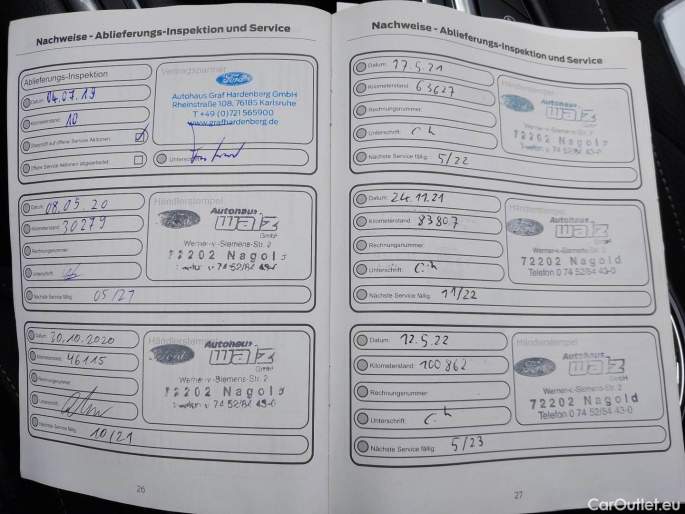 Nachweise - Ablieferungs-Inspektion und Service
Ablieferungs-Inspektion
Datum: 04.07.19
Kilometerstand: 10
Geprüft auf offene Service Aktionen:
Offene Service Aktionen abgearbeitet:
Vertragspartner
Ford
Autohaus Graf Hardenberg GmbH
Rheinstraße 108, 76185 Karlsruhe
T +49 (0)721 565900
www.grafhardenberg.de
Unterschrift:
Datum: 08.05.20
Kilometerstand: 30279
Rechnungsnummer:
Unterschrift:
Nächste Service fällig: 05/21
Händlerstempel
Ford
Autohaus
WALZ
GmbH
Werner-v.-Siemens-Str. 2
72202 Nagold
Datum: 30.10.2020
Kilometerstand: 46115
Rechnungsnummer:
Unterschrift:
Nächste Service fällig: 10/21
Händlerstempel
Ford
Autohaus
WALZ
GmbH
Werner-v.-Siemens-Str. 2
72202 Nagold
26
Nachweise - Ablieferungs-Inspektion und Service
Datum: 17.5.21
Kilometerstand: 63627
Rechnungsnummer:
Unterschrift:
Nächste Service fällig: 5/22
Händlerstempel
Autohaus
WALZ
72202 Nagold
Telefon 0 74 52/84 43-0
Datum: 24.11.21
Kilometerstand: 83807
Rechnungsnummer:
Unterschrift:
Nächste Service fällig: 11/22
Händlerstempel
Ford
Autohaus
WALZ
GmbH
Werner-v.-Siemens-Str. 2
72202 Nagold
Telefon 0 74 52/84 43-0
Datum: 12.5.22
Kilometerstand: 100862
Rechnungsnummer:
Unterschrift:
Nächste Service fällig: 5/23
Händlerstempel
Ford
Autohaus
WALZ
GmbH
Werner-v.-Siemens-Str. 2
72202 Nagold
Telefon 0 74 52/84 43-0
27
CarOutlet.eu